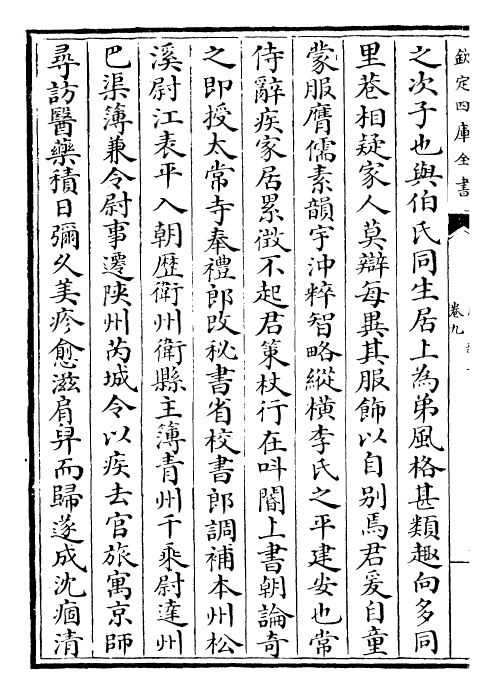 欽定四庫全書
卷九
之次子也與伯氏同生居上為弟風格甚類趣向多同
里巷相疑家人莫辯每異其服飾以自别焉君爰自童
蒙服膺儒素韻宇沖粹智略縱横李氏之平建安也常
侍辭疾家居累徵不起君策杖行在叫閽上書朝論奇
之即授太常寺奉禮郎改秘書省校書郎調補本州松
溪尉江表平入朝歴衛州衛縣主簿青州千乘尉達州
巴渠簿兼令尉事遷陜州芮城令以疾去官旅寓京師
尋訪醫藥積日彌久美疹愈滋肩舁而歸遂成沈痼清